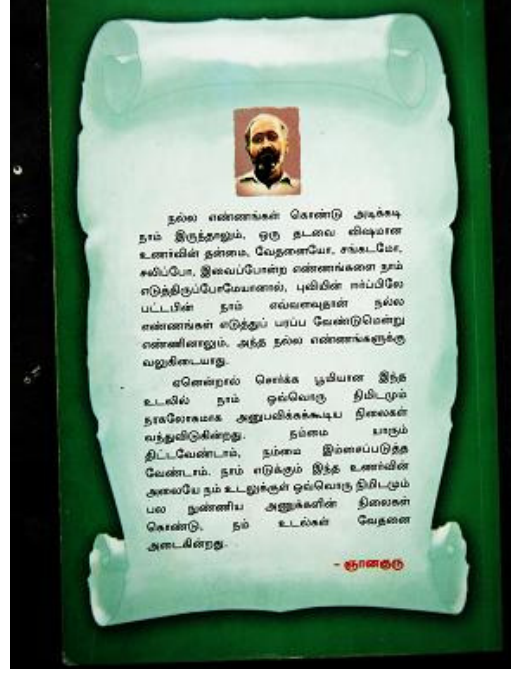 நல்ல எண்ணங்கள் கொண்டு அடிக்கடி
நாம் இருந்தாலும், ஒரு தடவை விஷமான
உணர்வின் தன்மை, வேதனையோ, சங்கடமோ,
சலிப்போ, இவைப்போன்ற எண்ணங்களை நாம்
எடுத்திருப்போமேயானால், புவியின் ஈர்ப்பிலே
பட்டபின் நாம் எவ்வளவுதான் நல்ல
எண்ணங்கள் எடுத்துப் பரப்ப வேண்டுமென்று
எண்ணினாலும், அந்த நல்ல எண்ணங்களுக்கு
வலுகிடையாது.
ஏனென்றால் சொர்க்க பூமியான இந்த
உடலில் நாம் ஒவ்வொரு நிமிடமும்
நரகலோகமாக அனுபவிக்கக்கூடிய நிலைகள்
வந்துவிடுகின்றது. நம்மை யாரும்
திட்டவேண்டாம், நம்மை இம்சைப்படுத்த
வேண்டாம். நாம் எடுக்கும் இந்த உணர்வின்
அலையே நம் உடலுக்குள் ஒவ்வொரு நிமிடமும்
பல நுண்ணிய அணுக்களின் நிலைகள்
கொண்டு, நம் உடல்கள் வேதனை
அடைகின்றது.
- ஞானகுரு